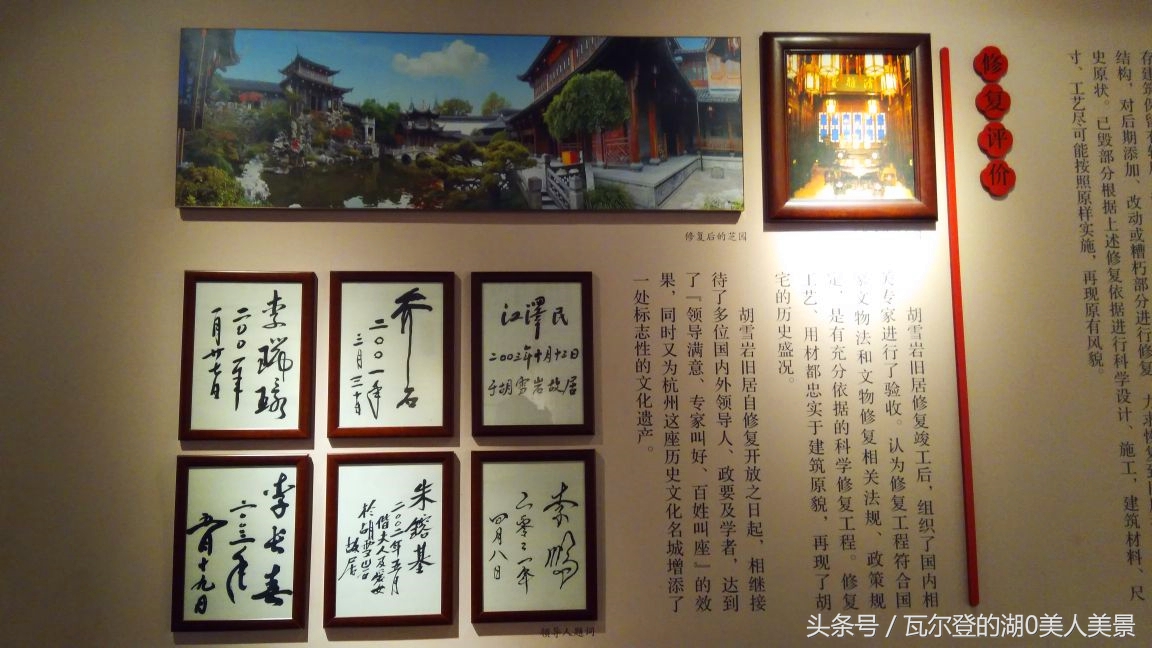 结构，对后期添加、改动或糟朽部分进行修复，力求恢复到旧
史原状。已毁部分根据上述修复依据进行科学设计、施工，建筑材料、尺
寸、工艺尽可能按照原样实施，再现原有风貌。
修复评价
胡雪岩旧居修复竣工后，组织了国内相
关专家进行了验收。认为修复工程符合国
家文物法和文物修复相关法规、政策规
定，是有充分依据的科学修复工程。修复
工艺、用材都忠实于建筑原貌，再现了胡
宅的历史盛况。
胡雪岩旧居自修复开放之日起，相继接
待了多位国内外领导人、政要及学者，达到
了『领导满意、专家叫好、百姓叫座』的效
果，同时又为杭州这座历史文化名城增添了
一处标志性的文化遗产。
修复后的芝园
江澤民
二00三年十月十二日
于胡雪岩故居
乔石
二00一年
三月三十日
李瑞环
二00一年
一月廿七日
李鹏
二零零一年
四月八日
朱鎔基
二00二年五月
偕夫人及安女
於胡雪岩
故居
李长春
二00三年
六月十九日
领导人题词
头条号 / 瓦尔登的湖0美人美景